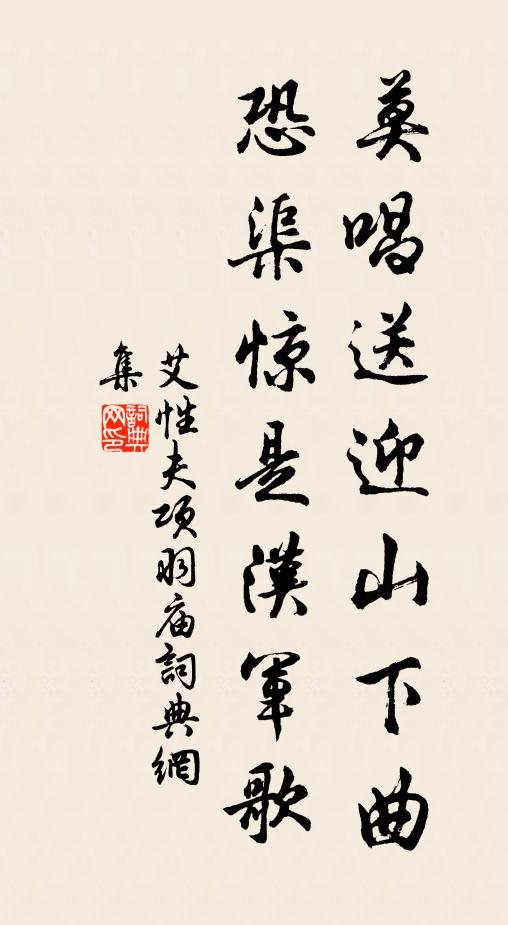 莫唱送迎山下曲
恐渠惊是漢軍歌
艾性夫项羽庙詞典網
集
詞典网印